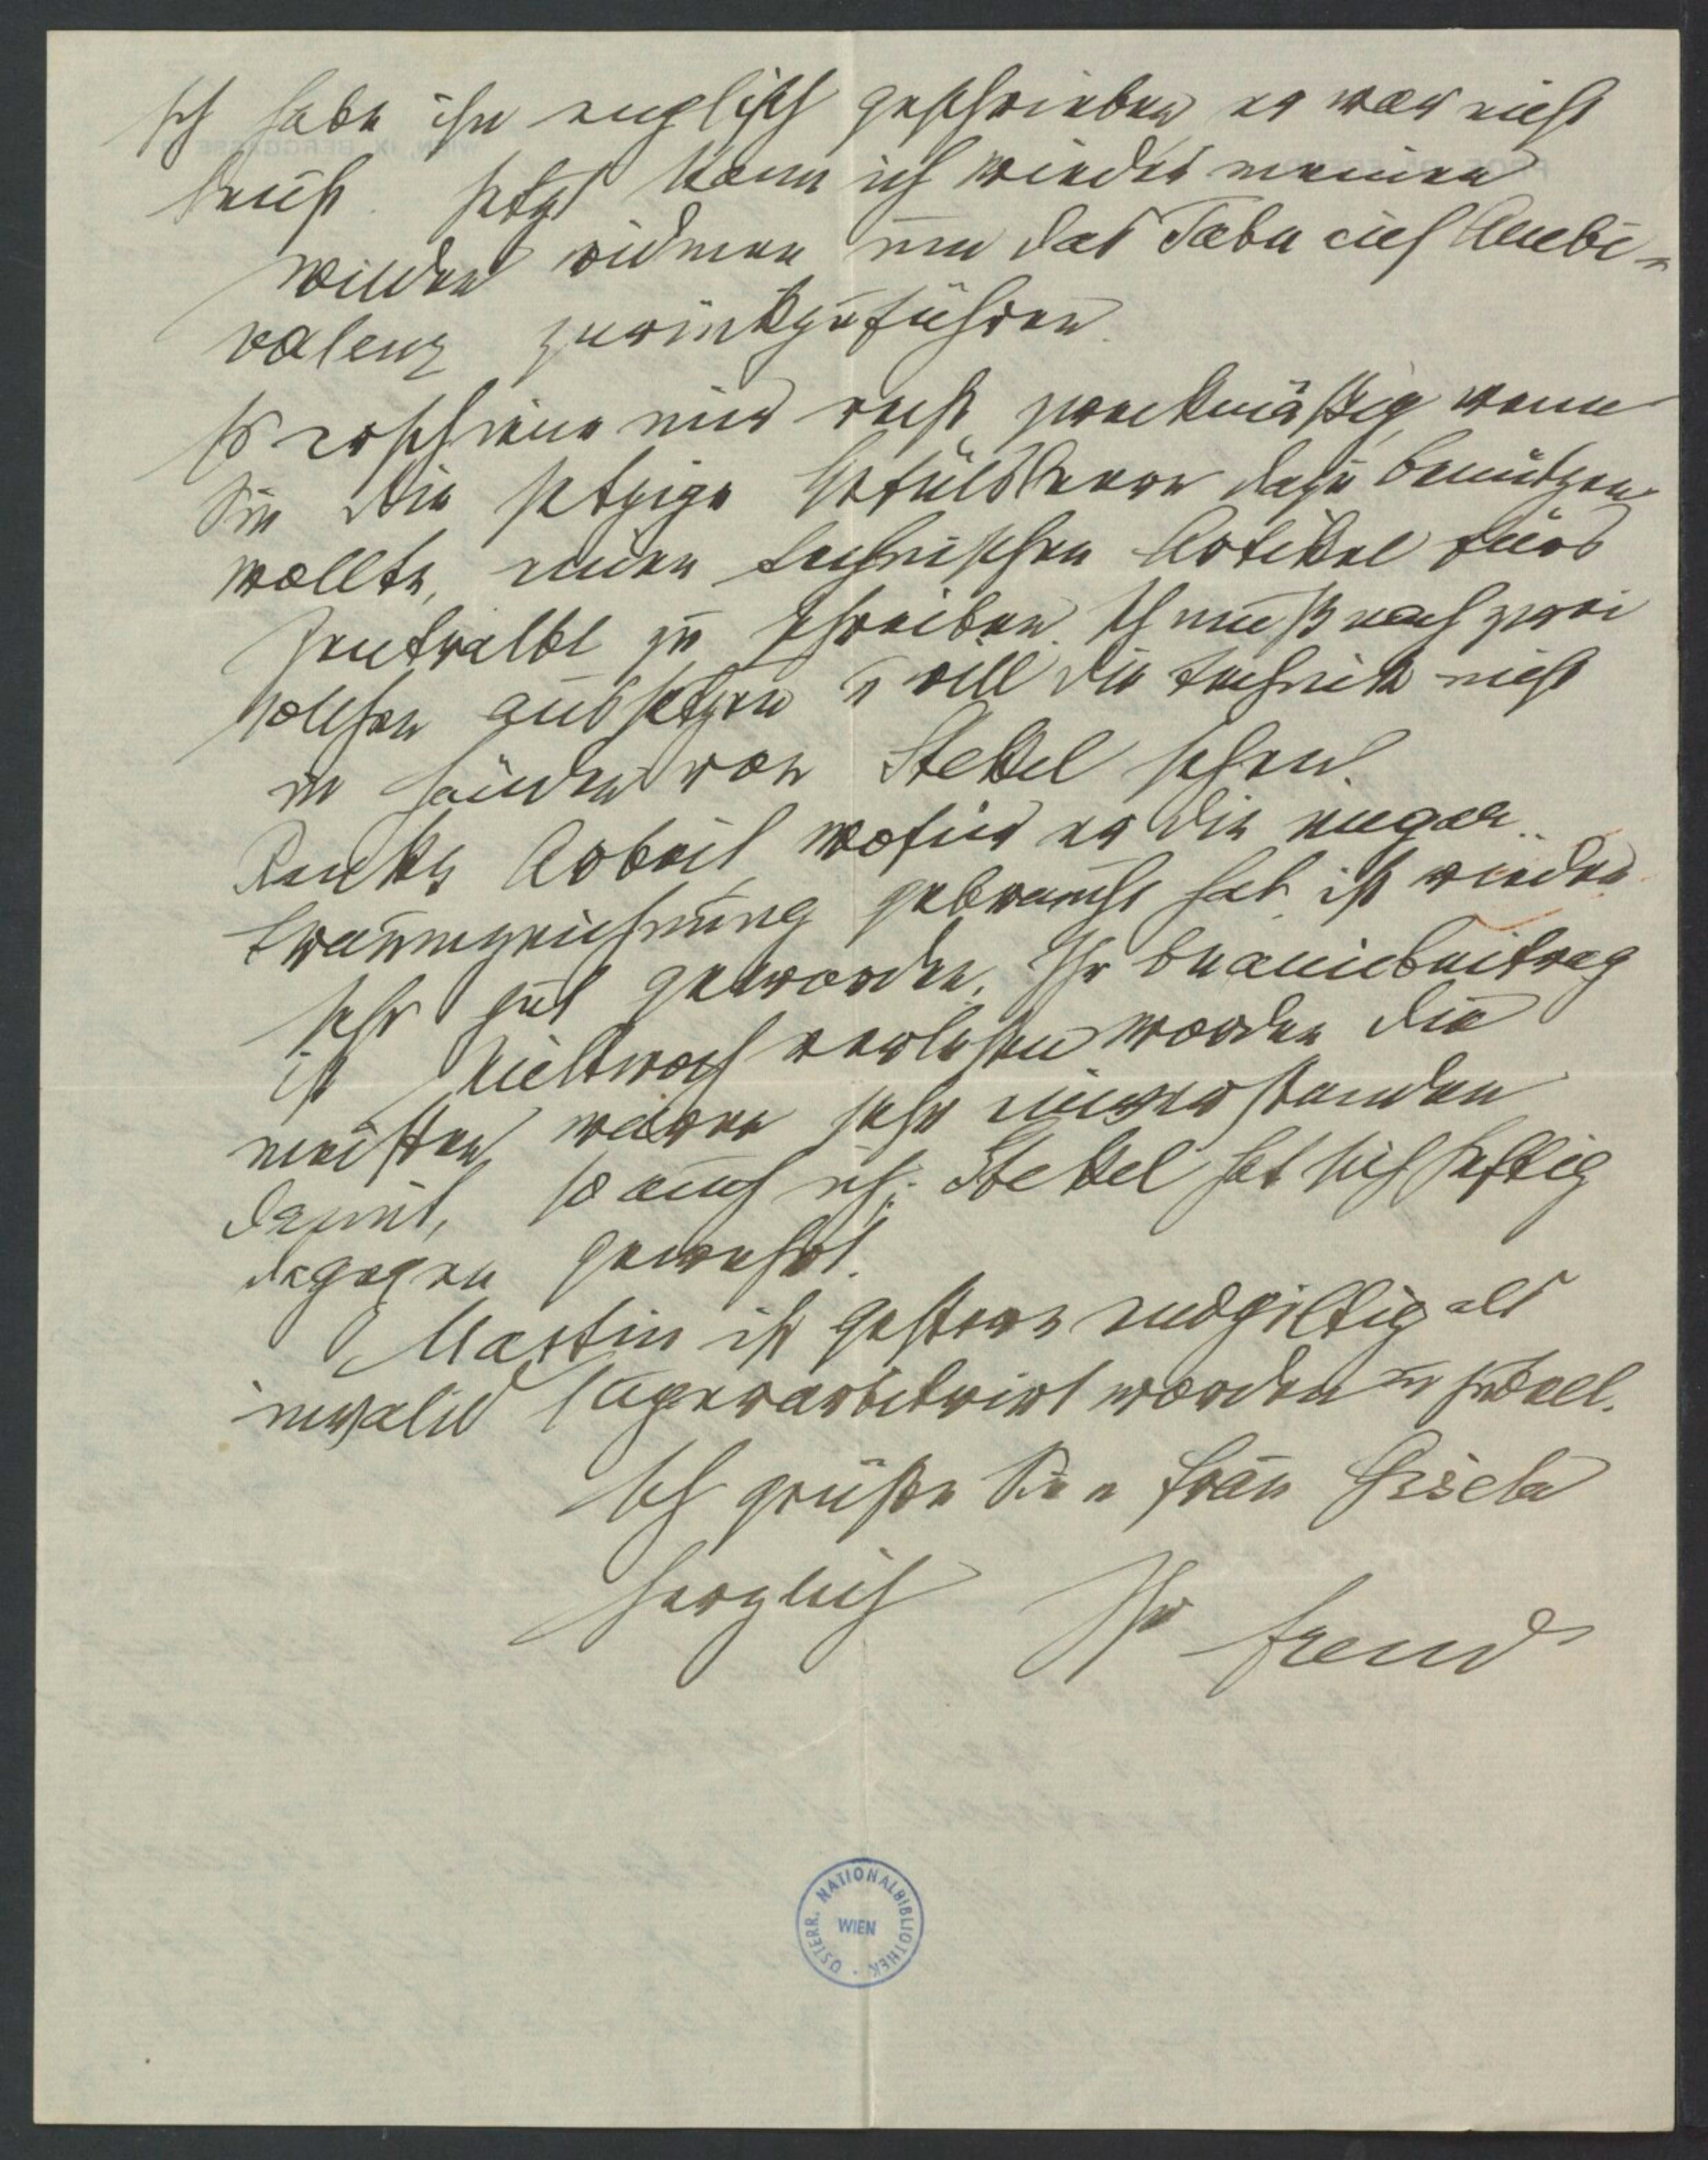 Ich habe ihn englisch geschrieben, es war nicht
leicht. Jetzt kann ich wieder meinen
Wilden widmen um das Tabu auf Ambi-
valenz zurückzuführen.
Es erschiene mir recht zweckmäßig, wenn
Sie die jetzige
wollten, einen technischen Artikel fürs
Zentralbl zu schreiben. Ich muß nach zwei
solchen aussetzen u will die Technik nicht
in Händen von Stekel sehen.
Ranks Arbeit, wofür er die ungar.
Traumzeichnung gebraucht hat, ist wieder
sehr gut geworden. Ihr Onaniebeitrag
ist Mittwoch verlesen worden die
meisten waren sehr einverstanden
damit, so auch ich; Stekel hat sich heftig
dagegen gewehrt.
Martin ist gestern endgiltig als
invalid superarbitrirt worden
Ich grüße Sie u Frau Gisela
herzlich Ihr Freud
ÖSTERR. NATIONALBIBLIOTHEK
WIEN